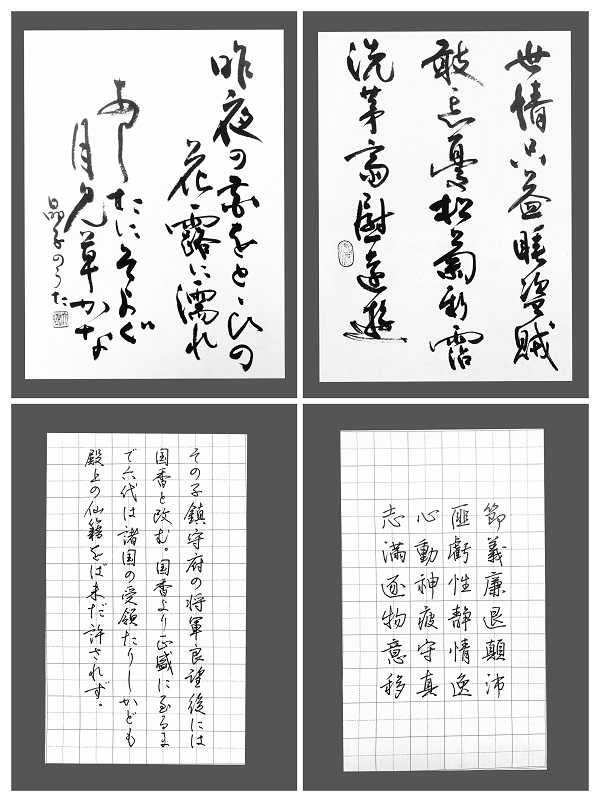 昨夜の をとゝひの
花露に濡れ
あしたにそよぐ
月見草かな
晶子のうた
世情只益睡盗賊
敢忘憂松菊新霑
洗茅斎慰遠遊
その子鎮守府の将軍良望後には
国香と改む。国香より正盛に至るま
で六代は諸国の受領たりしかども
殿上の仙籍をば未だ許されず。
節義廉退顛沛
匪虧性静情逸
心動神疲守真
志満逐物意移